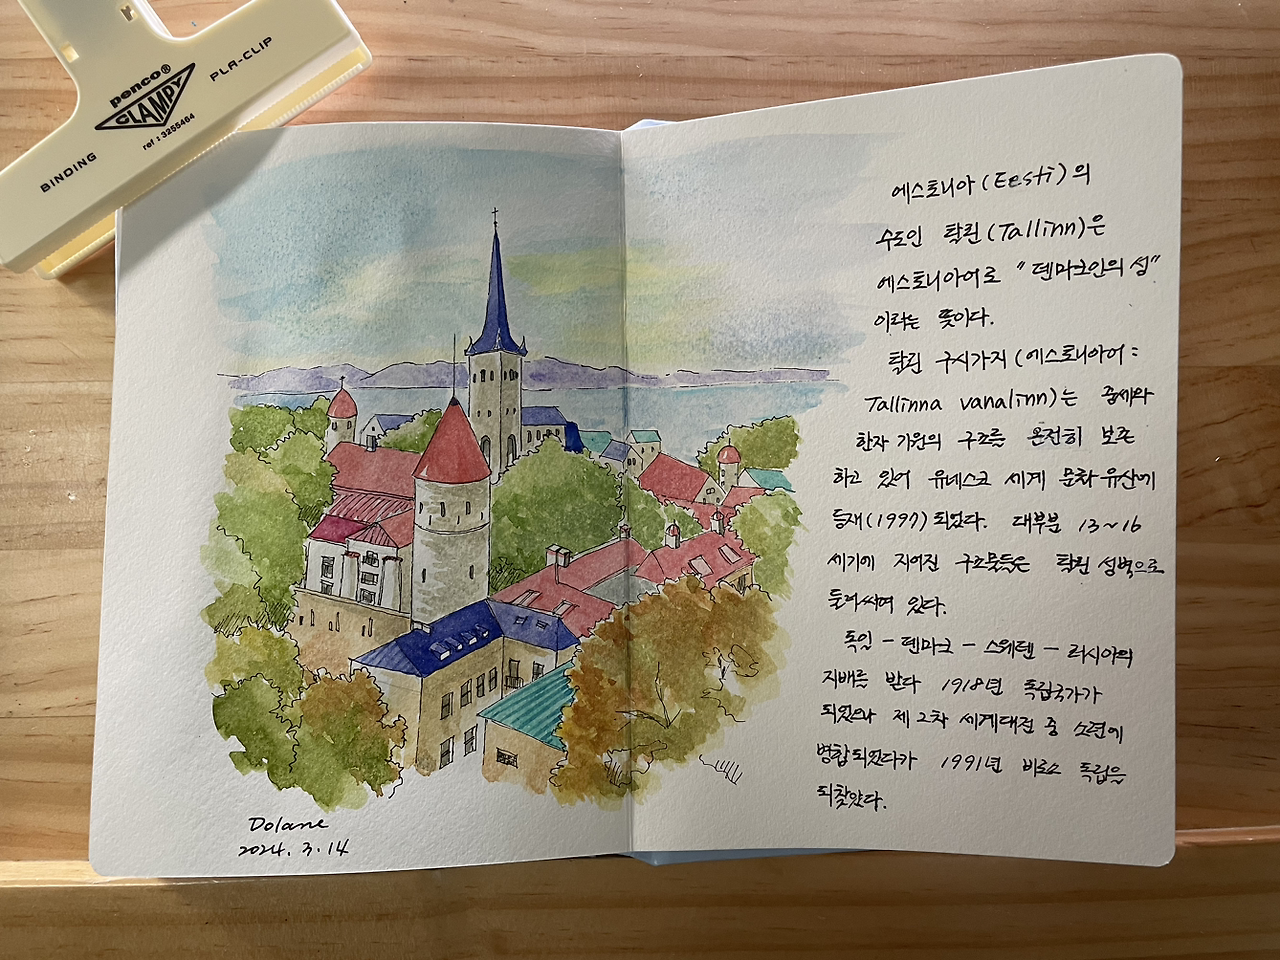 penco®
CLAMPY
BINDING
PLA-CLIP
ref : 3255464
에스토니아(Eesti)의
수도인 탈린(Tallinn)은
에스토니아어로 "덴마크인의 성"
이라는 뜻이다.
탈린 구시가지(에스토니아어 :
Tallinna vanalinn)는 중세와
한자 기원의 구조를 온전히 보존
하고 있어 유네스코 세계 문화유산에
등재(1997)되었다. 대부분 13~16
세기에 지어진 구조물들은 탈린 성벽으로
둘러싸여 있다.
독일 - 덴마크 - 스웨덴 - 러시아의
지배를 받다 1918년 독립국가가
되었으나 제2차 세계대전 중 소련에
병합되었다가 1991년 비로소 독립을
되찾았다.
Dolane
2024. 3. 14